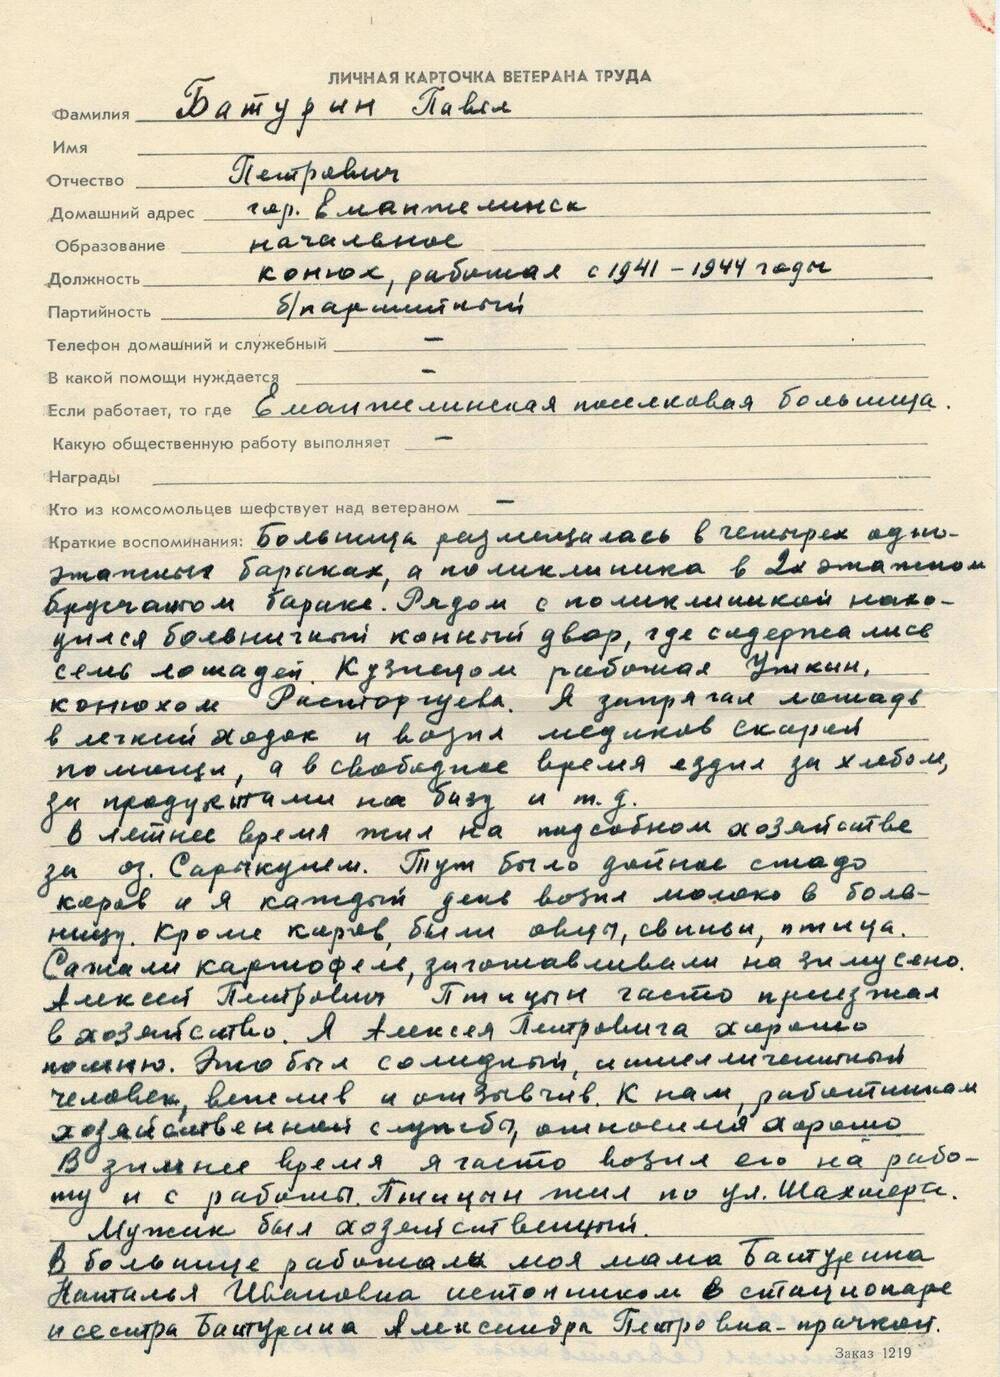 ЛИЧНАЯ КАРТОЧКА ВЕТЕРАНА ТРУДА
Фамилия Батурин Павел
Имя
Отчество Петрович
Домашний адрес гор. Еманжелинск
Образование начальное
Должность конюх, работал с 1941 – 1944 годы
Партийность б/партийный
Телефон домашний и служебный –
В какой помощи нуждается –
Если работает, то где Еманжелинская поселковая больница.
Какую общественную работу выполняет –
Награды
Кто из комсомольцев шефствует над ветераном –
Краткие воспоминания: Больница размещалась в четырех одно-
этажных бараках, а поликлиника в 2х этажном
брусчатом бараке. Рядом с поликлиникой нахо-
дился больничный конный двор, где содержались
семь лошадей. Кузнецом работал Уткин,
конюхом Расторгуева. Я запрягал лошадь
в легкий ходок и возил медиков скорой
помощи, а в свободное время ездил за хлебом,
за продуктами на базу и т.д.
В летнее время жил на подсобном хозяйстве
за оз. Сарыкулем. Тут было дойное стадо
коров и я каждый день возил молоко в боль-
ницу. Кроме коров, были овцы, свиньи, птица.
Сажали картофель, заготавливали на зиму сено.
Алексей Петрович Птицын часто приезжал
в хозяйство. Я Алексея Петровича хорошо
помню. Это был солидный, интеллигентный
человек, вежлив и отзывчив. К нам, работникам
хозяйственной службы, относился хорошо
В зимнее время я часто возил его на рабо-
ту и с работы. Птицын жил по ул. Шахтера.
Мужик был хозяйственный.
В больнице работала моя мама Батурина
Наталья Ивановна истопником в стационаре
и сестра Батурина Александра Петровна – прачкой.
Заказ 1219